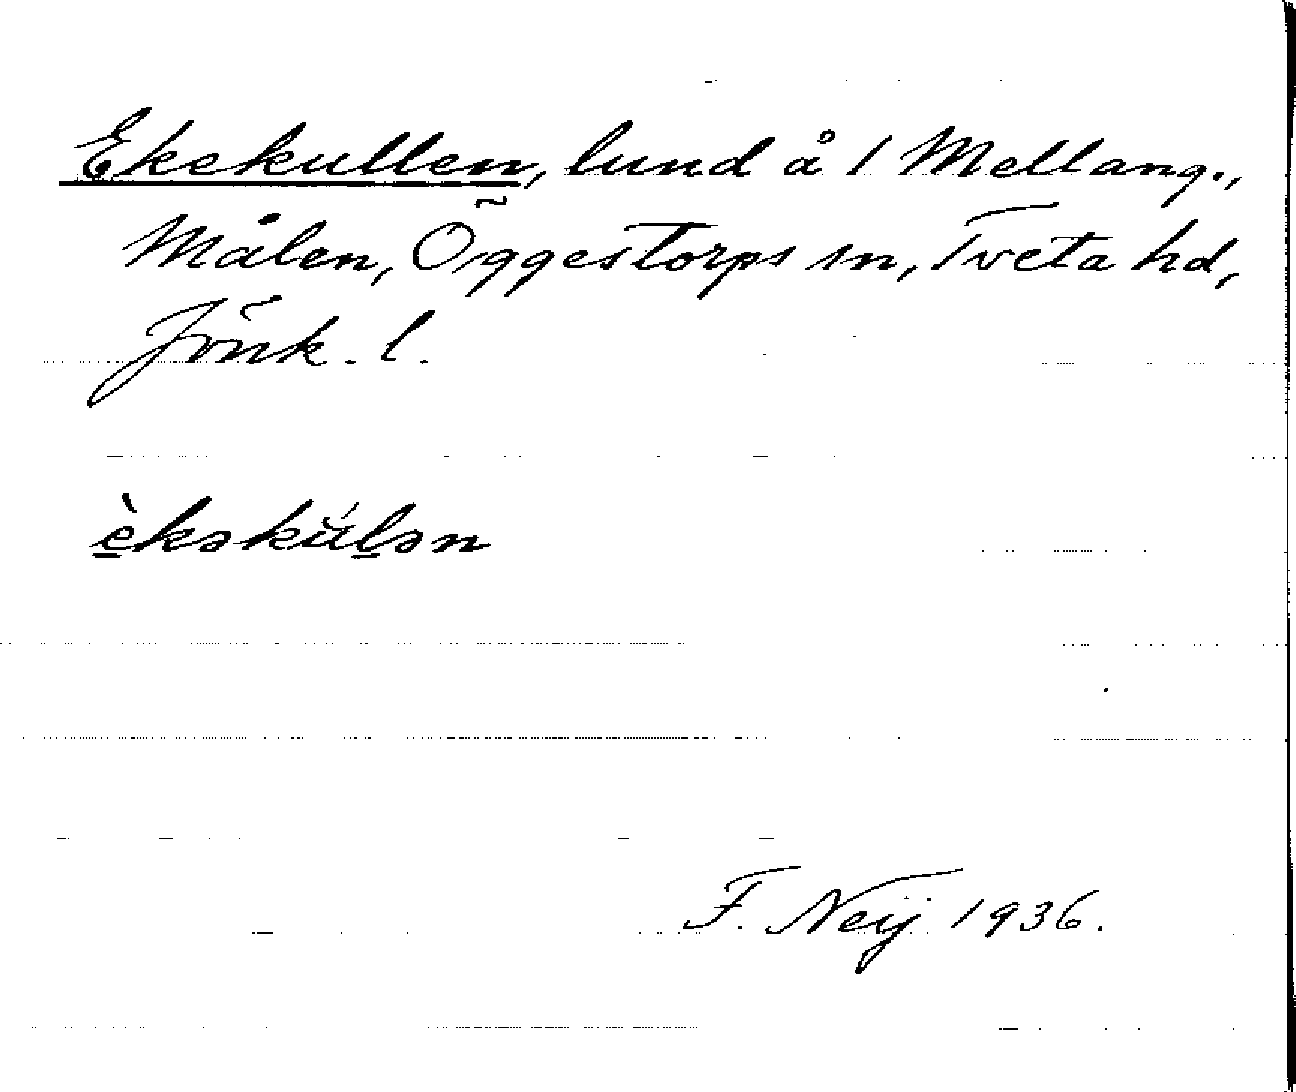 Ekekullen, lund å 1 Mellang.,
Målen, Öggestorps sn, Tveta hd,
Jönk. l.
èkəkúlən
F. Neij 1936.